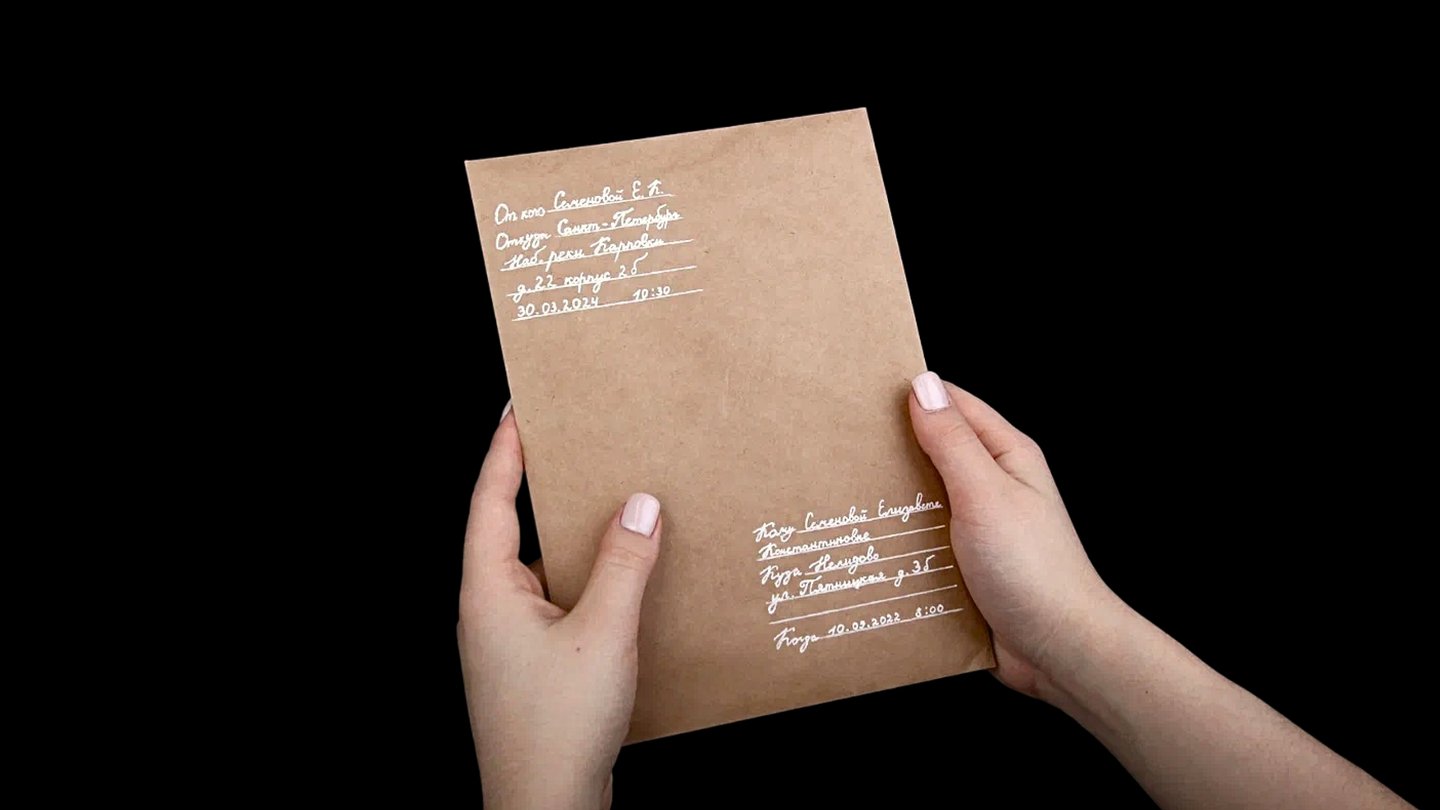 От кого Семеновой Е. К.
Откуда Санкт-Петербург
Наб. реки Карповки
д. 22 корпус 2б
30.03.2024 10:30
Кому Семеновой Елизавете
Константиновне
Куда Нелидово
ул. Пятницкая д. 3б
Когда 10.09.2022 8:00